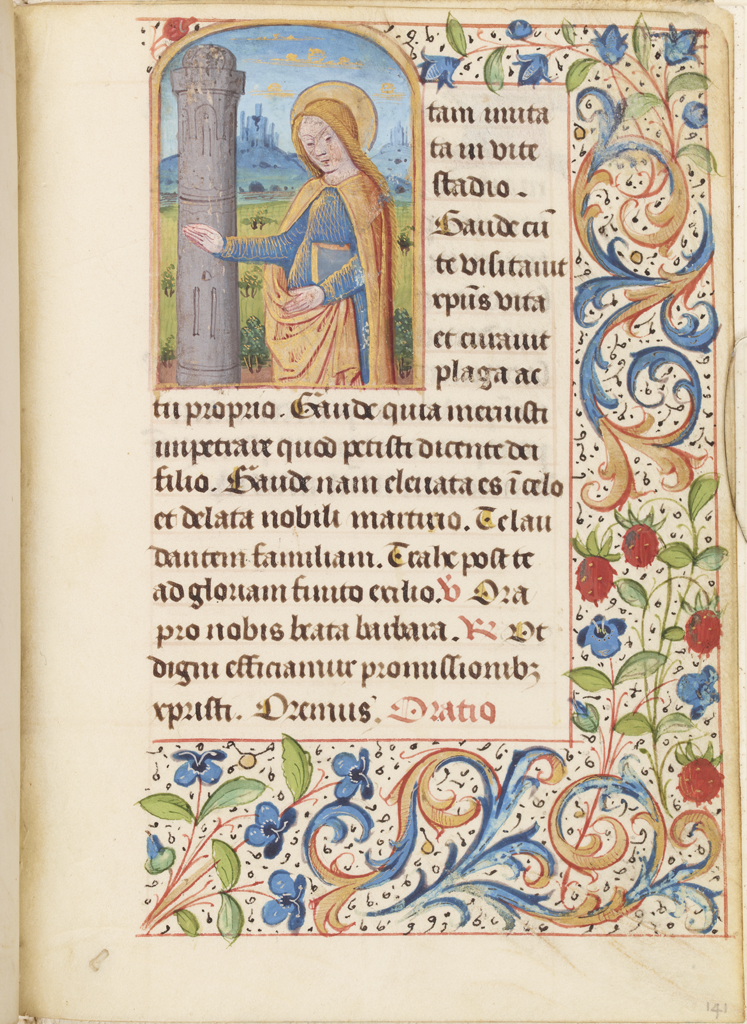 tam imita
ta in vite
stadio.
Gaude cū
te visitauit
xpūs vita
et curauit
plaga ac
tu proprio. Gaude quia meruisti
impetrare quod petisti dicente dei
filio. Gaude nam eleuata es ī celo
et delata nobili martirio. Te lau
dantem familiam. Trahe post te
ad gloriam finito exilio. ℣ Ora
pro nobis beata barbara. ℟ Vt
digni efficiamur promissionibꝫ
xpristi. Oremus. Oratio
141